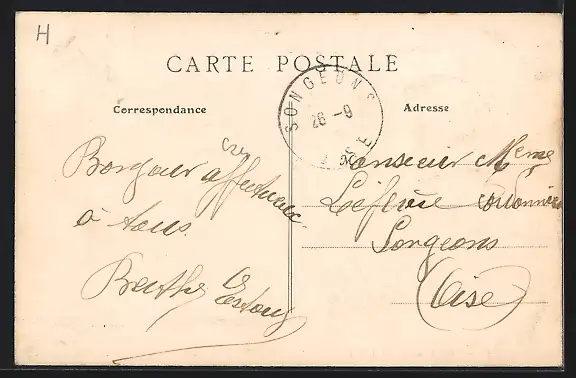 H
CARTE POSTALE
Correspondance
Adresse
SONGEONS
26 - 9
OISE
Bonjour affectueux
à tous
Berthe
Monsieur Meme
Lefevre Cordonnier
Songeons
(Oise)